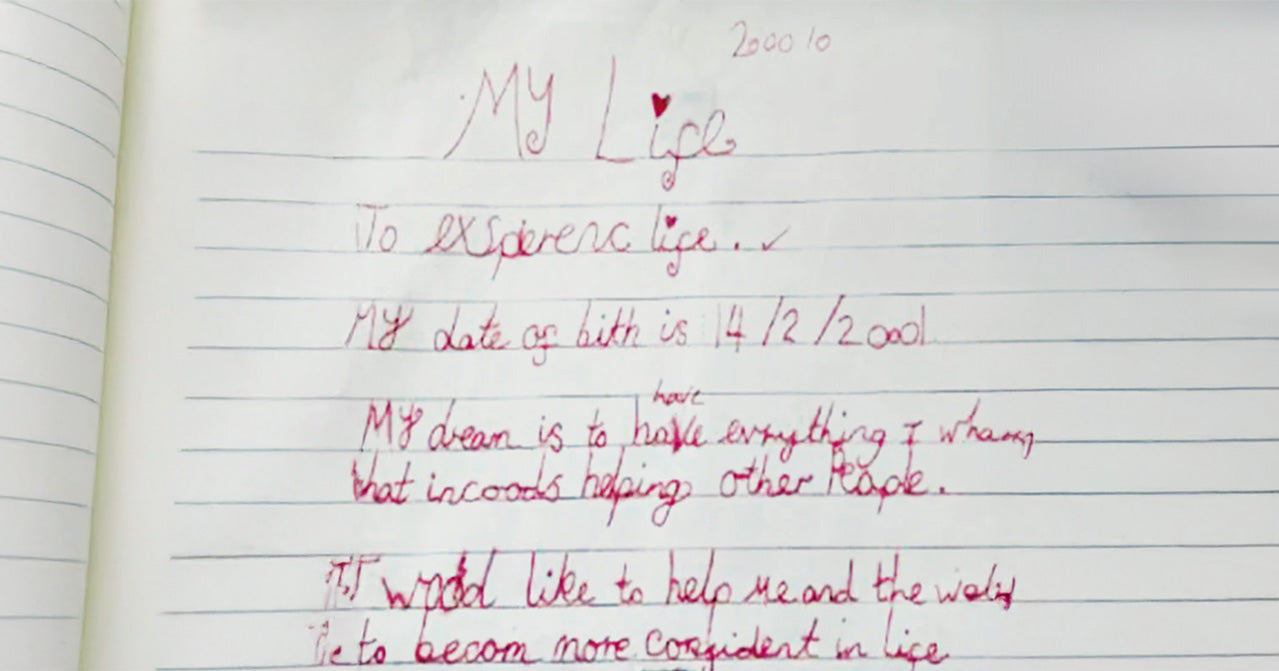 2000 10
My Life
To exsperenc life. ✓
My date of bith is 14/2/2001
have
My dream is to have evrything I
that incoods helping other Peaple.
I would like to help me and the
to becom more confident in life